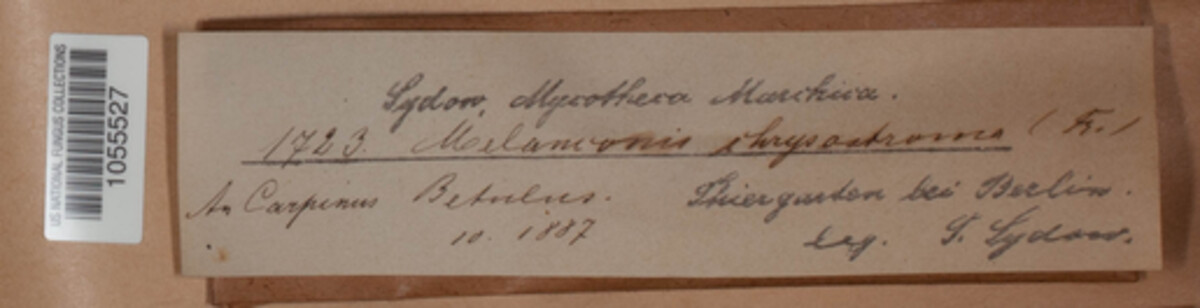 US NATIONAL FUNGUS COLLECTIONS
01055527
Sydow, Mycotheca Marchica.
1723. Melanconis chrysostroma (Fr.)
An Carpinus Betulus. Thiergarten bei Berlin.
10. 1887 leg. P. Sydow.